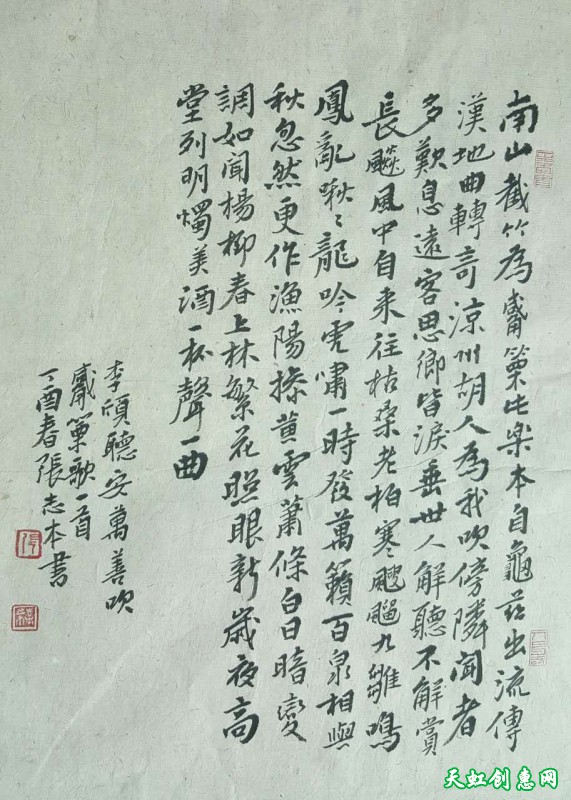 南山截竹為觱篥此楽本自龜茲出流傳
漢地曲轉奇涼州胡人為我吹傍隣聞者
多歎息遠客思鄉皆淚垂世人解聽不解賞
長飈風中自来往枯桑老柏寒颼飀九雛鳴
鳳亂啾〻龍吟虎嘯一時發萬籟百泉相與
秋忽然更作漁陽摻黃雲蕭條白日暗變
調如聞楊柳春上林繁花照眼新歲夜高
堂列明燭美酒一杯聲一曲
李頎聽安萬善吹
觱篥歌一首
丁酉春張志本書
天虹创惠网